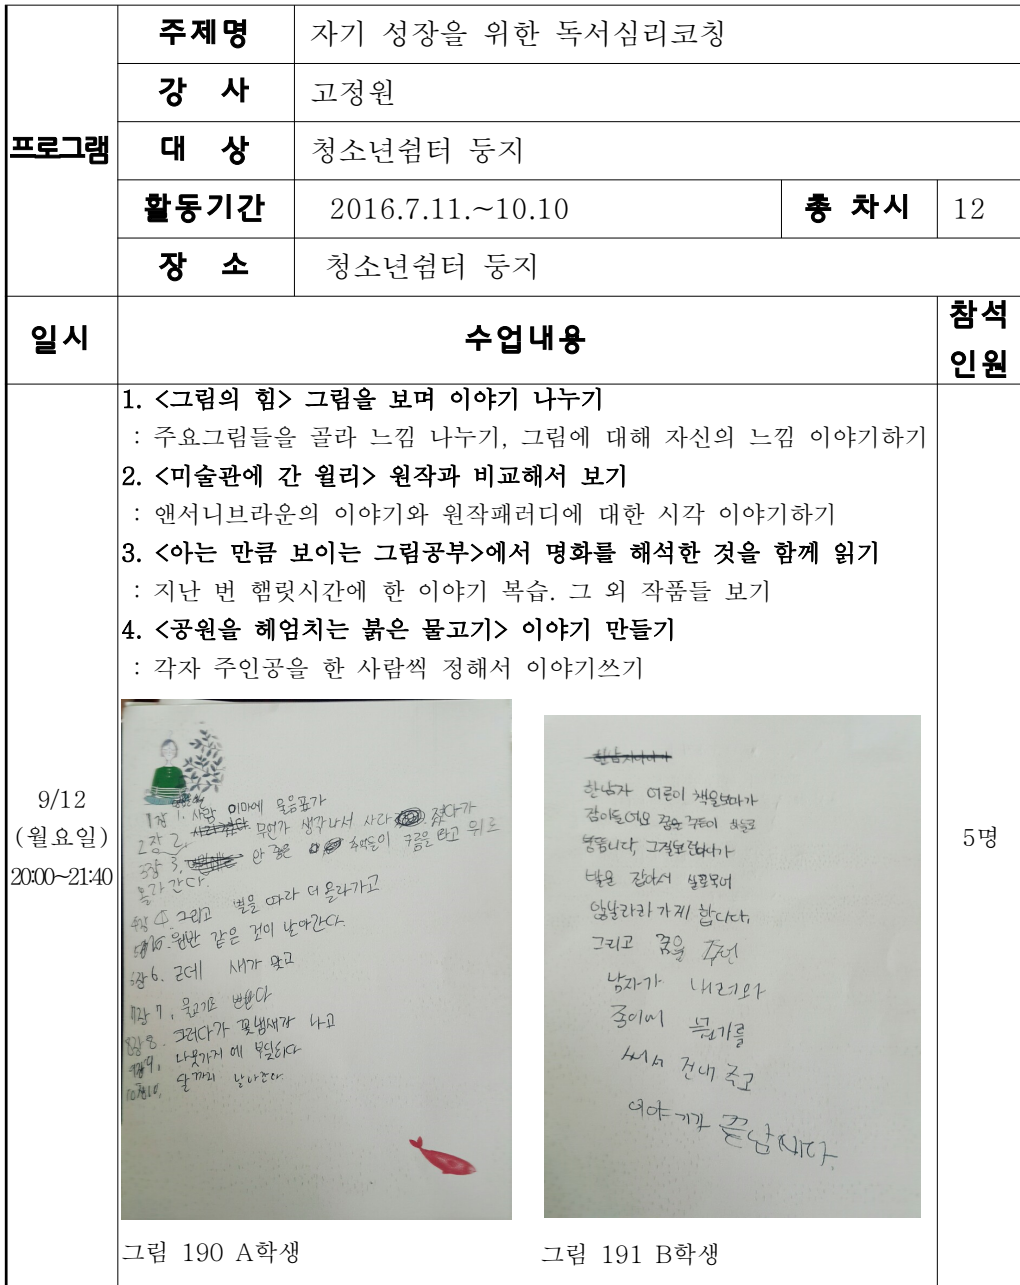 프로그램
주제명 자기 성장을 위한 독서심리코칭
강 사 고정원
대 상 청소년쉼터 둥지
활동기간 2016.7.11.~10.10 총 차시 12
장 소 청소년쉼터 둥지
일시 수업내용 참석인원
1. <그림의 힘> 그림을 보며 이야기 나누기
: 주요그림들을 골라 느낌 나누기, 그림에 대해 자신의 느낌 이야기하기
2. <미술관에 간 윌리> 원작과 비교해서 보기
: 앤서니브라운의 이야기와 원작패러디에 대한 시각 이야기하기
3. <아는 만큼 보이는 그림공부>에서 명화를 해석한 것을 함께 읽기
: 지난 번 햄릿시간에 한 이야기 복습. 그 외 작품들 보기
4. <공원을 헤엄치는 붉은 물고기> 이야기 만들기
: 각자 주인공을 한 사람씩 정해서 이야기쓰기
9/12
(월요일)
20:00~21:40
5명
1장 1. 사람 이마에 물음표가
2장 2. 무언가 생각나서 사라 졌다가
3장 3. 안 좋은 추억들이 구름을 타고 위로
올라간다.
4장 4. 그리고 별을 따라 더 올라가고
5장 5. 원반 같은 것이 날아간다.
6장 6. 근데 새가 왔고
7장 7. 물고기도
8장 8. 그러다가 꽃냄새가 나고
9장 9. 나뭇가지에 부딪히다
10장 10. 달까지 날아간다.
한남자 어른이 책을보다가
잠이들어요 꿈은 하늘로
발을 잡아서
가게 합니다.
그리고 꿈을
남자가 내려와
종이에 뭔가를
써서 건내 주고
이야기가 끝납니다.
그림 190 A학생
그림 191 B학생